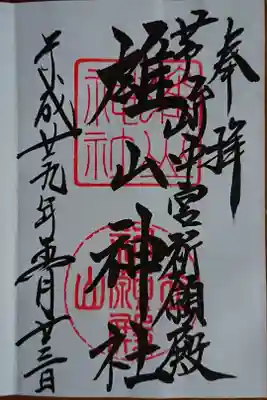 奉拝
芦峅中宮祈願殿
雄山神社
平成廿九年五月廿三日
雄山
神社